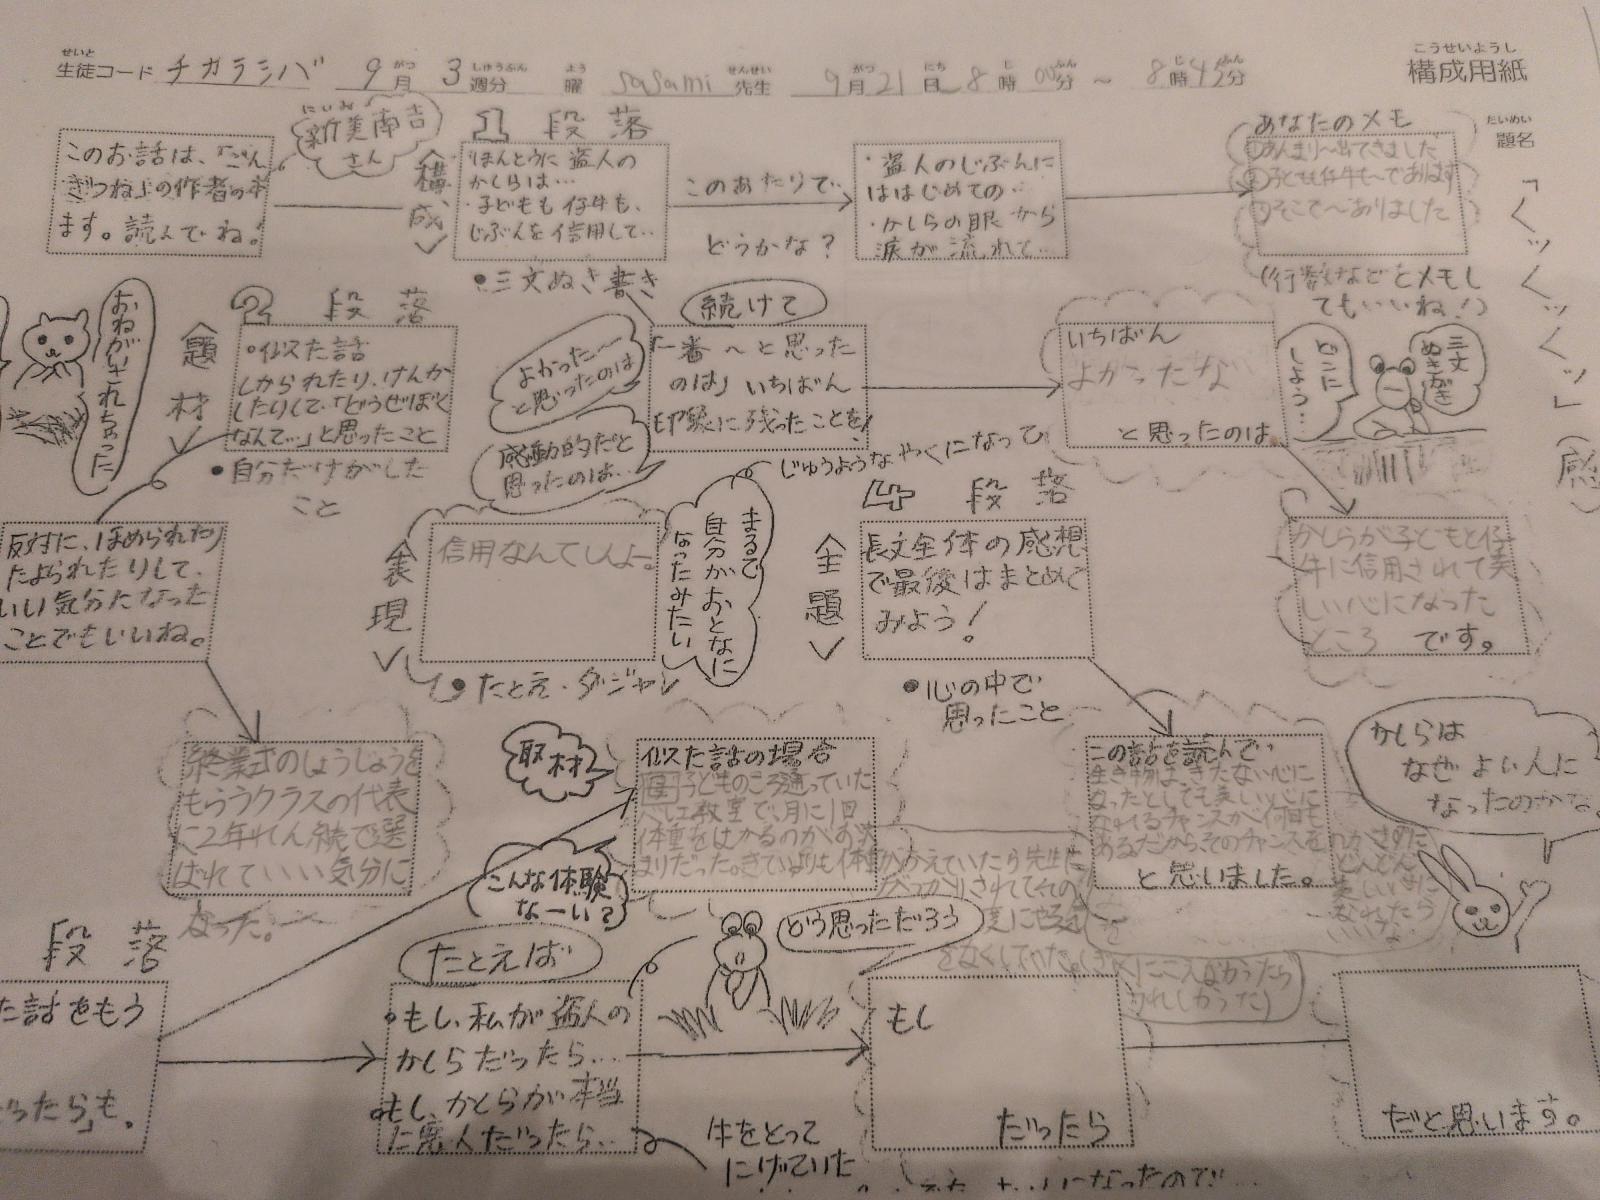 せいと
生徒コード チガラシバ 9月 3週分 曜 sasami 先生 9月21日8時00分～8時42分
がつ しゅうぶん よう せんせい がつ にち じ ふん じ ふん
こうせいようし
構成用紙
だいめい
題名
「くッくッくッ」(感)
このお話は、「ごん
ぎつね」の作者の本
ます。読んでね!
にいみ
新美南吉
さん
1 段落
〈構成〉
・ほんとうに盗人の
かしらは…
・子どもも仔牛も、
じぶんを信用して…
●三文ぬき書き
このあたりで…
どうかな?
・盗人のじぶんに
はじめての…
・かしらの眼から
涙が流れて…
あなたのメモ
①あんまり～出てきました
②子どもも仔牛も～であります
③そこで～ありました
(行数などをメモし
てもいいね!)
おねがいされちゃった
2 段落
〈題材〉
●似た話
しかられたり、けんか
したりして、「どうせぼく
なんて…」と思ったこと
●自分だけがした
こと
よかった～
と思ったのは
感動的だと
思ったのは…
続けて
「一番～と思った
のは」いちばん
印象に残ったことを!
いちばん
よかったな
と思ったのは
どこに
しよう…
三文
ぬきがき
反対に、ほめられたり
たよられたりして、
いい気分になった
ことでもいいね。
〈表現〉
信用なんてしんよー。
●たとえ・ダジャレ
まるで
自分がおとなに
なったみたい
じゅうようなやくになって
4 段落
〈主題〉
長文全体の感想
で最後はまとめて
みよう!
●心の中で
思ったこと
かしらが子どもと仔
牛に信用されて美
しい心になった
ところ です。
終業式のしょうじょうを
もらうクラスの代表
に2年れん続で選
ばれていい気分に
なった。
取材
こんな体験
なーい?
似た話の場合
母 子どものころ通っていた
バレエ教室で、月に1回
体重をはかるのがお決
まりだった。きているよりも体重
がふえていたら先生に
がっかりされて
どう思っただろう
この話を読んで…
生き物は、きたない心に
なったとしても美しい心に
なれるチャンスが何回も
あるだからそのチャンスをのがさずに
どんどん
美しい心に
なれたら
いいな
と思いました。
かしらは
なぜよい人に
なったのかな。
段落
た話をもう
ったら」も。
たとえば
●もし、私が盗人の
かしらだったら…
●もし、かしらが本当
に悪人だったら…
牛をとって
にげていた
もし
だったら
だと思います。
になったので…